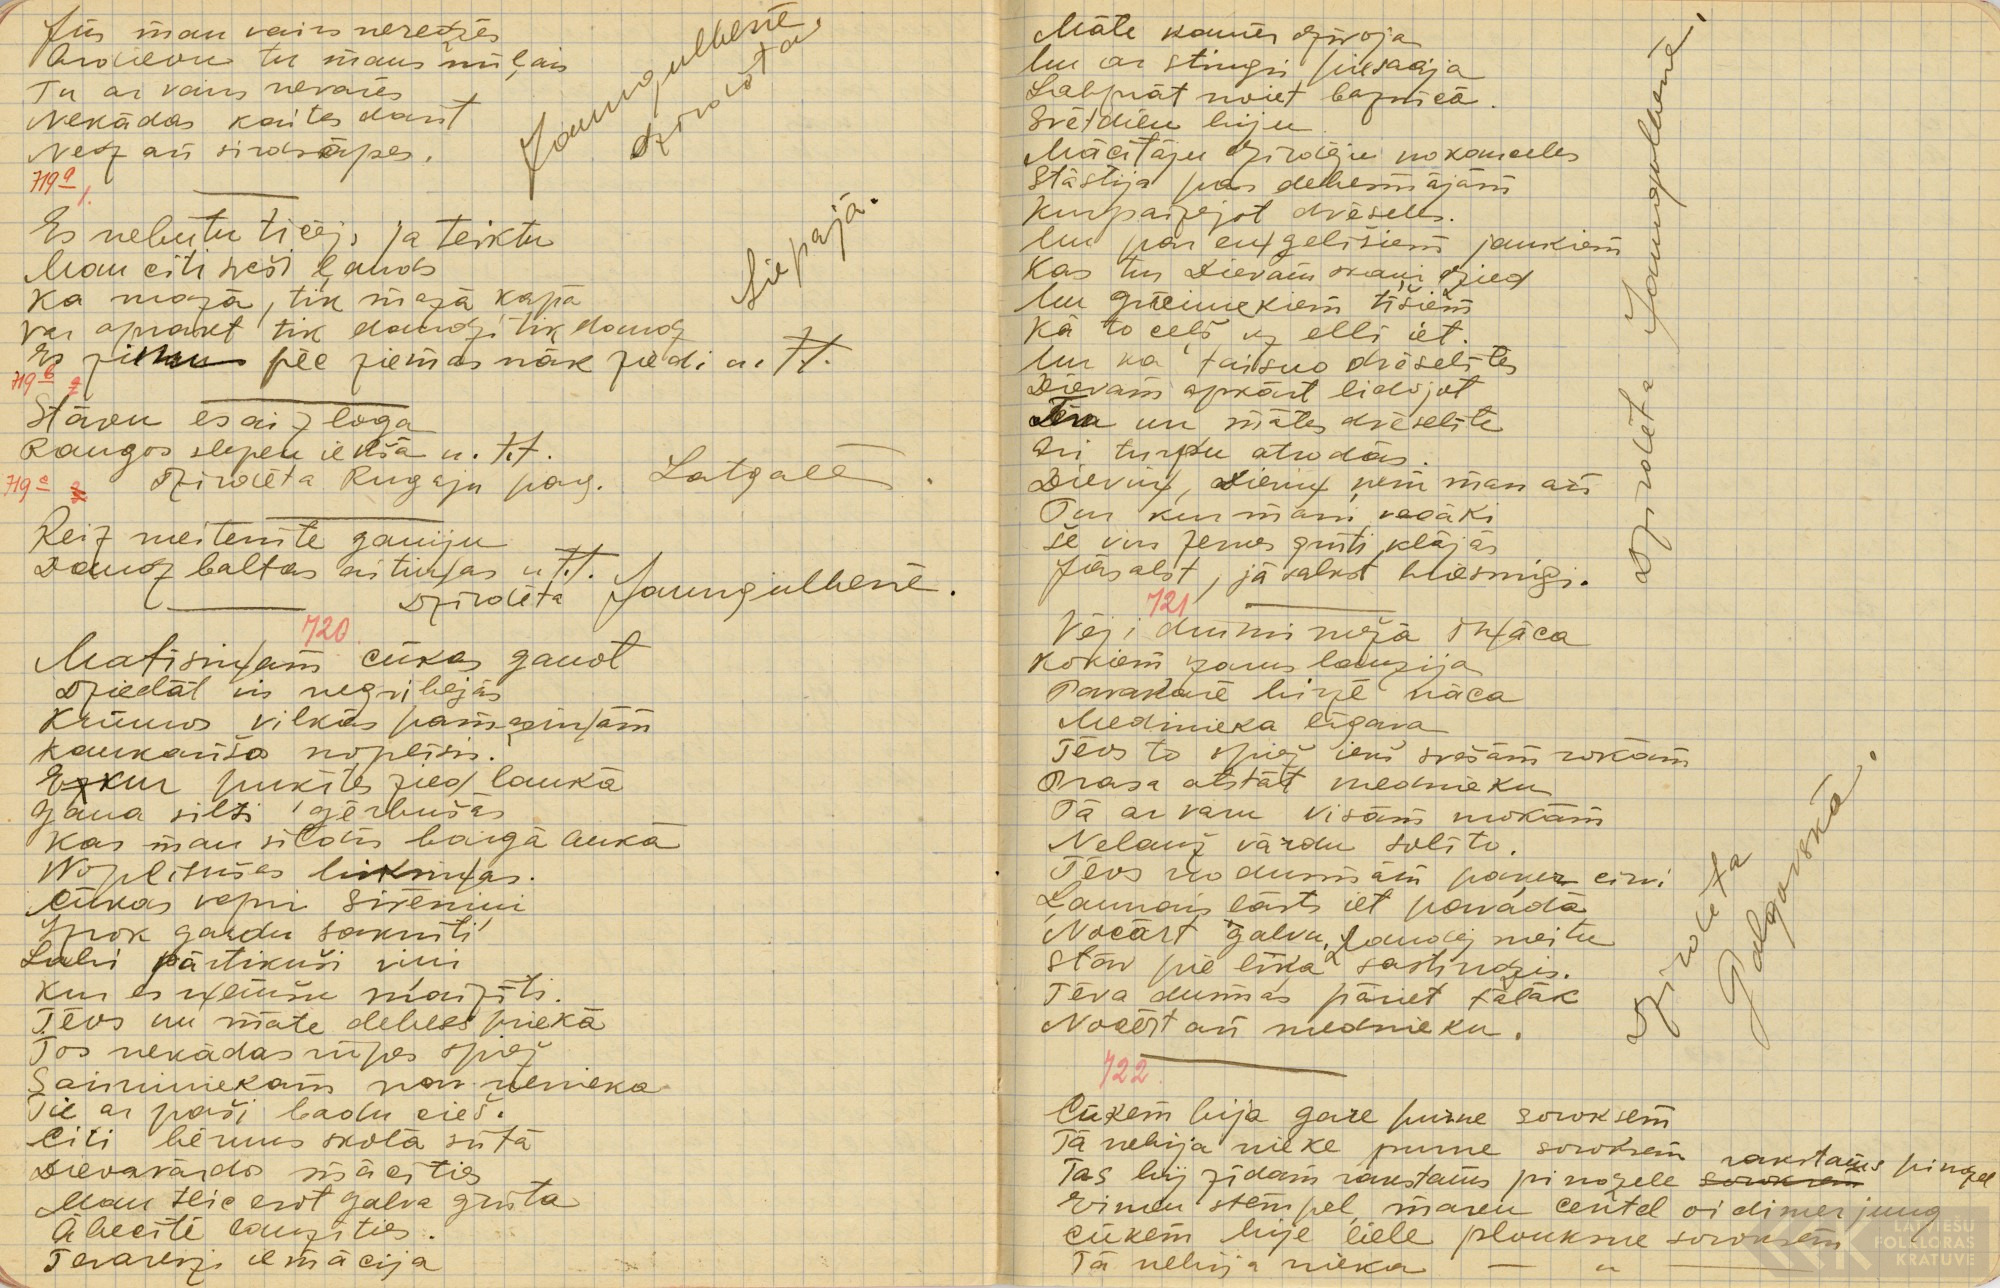 Jūs man vairs neredzēs
Ardievu tu mans mīļais
Tu ar vairs nevarēs
Nekādas kaites darīt
Nedz arī sirdsāpes.
Jaungulbenē,
dzirdēta
719 a
1.
Es nebūtu ticēj, ja teiktu
Man citi sveši ļauds
Ka mazā, tik mazā kapā
Var aprakt tik daudz, tik daudz
Liepājā.
Es pēc ziemas nāk ziedi u. t.t.
719 b
Stāvu es aiz loga
Raugos slepen iekšā u. t.t.
719 c
Dzirdēta Rugāju pag. Latgalē.
Reiz meitenīte ganīju
Daudz baltas aitiņas u t.t.
Dzirdēta Jaungulbenē.
720
Matīsiņam cūkas ganot
Dziedāt vis negribējās
Krūmos vilkās pamaziņām
kaukanīšo noplīsis.
Ezkur puķītes zied laukā
gana silti ģērbušās
Kas man sildīs bargā aukā
Noplīsušas biksiņas.
Cūkas vepri sivēniņi
Izrok gardu saknīti
Labi pārtikuši viņi
Kur es ņemšu maizīti.
Tēvs un māte debess priekā
Tos nekādas rūpes spiež
Saimniekam nav nenieka
Tie ar paši badu cieš.
Citi bērnus skolā sūta
Dievavārdos mācīties
Man tik cirot galva grūta
Ābecītē lauzīties.
Tēvareizi iemācīja
Māte kamēr dzīvoja
Un ar stingri piesacīja
Labprāt noiet baznīcā.
Svētdien biju
Mācītāju dzirdēju no kanceles
Stāstīja par debesmājām
Kurp aizejot dvēseles.
Un par eņģelīšiem jaukiem
Kas tur Dievam skaņi dzied
Un grēciniekiem tīšiem
Kā to ceļš uz elli iet.
Un kā taisno dvēselītes
Dievam apkārt lidojot
Tēva un mātes dvēselīte
Arī turpu atrodās.
Dieviņ, Dieviņ ņem man arī
Tur kur mani vecāki
Še virs zemes grūti klājās
Jāsalst, jāsalst briesmīgi.
Dzirdēta Jaungulbenē
721
Vēji drūmi mežā šņāca
Kokiem zarus lauzīja
Pavakarē birzē nāca
Mednieka līgava
Tēvs to spiež iekš svešām rokām
Prasa atstāt mednieku
Tā ar varu visām mokām
Nelauž vārdu solīto.
Tēvs no dusmām paķer cirvi
Ļaunais gars iet pavadā
Nocērt galvu daudzj meitu
Stāv pie līķa sastindzis.
Tēva dusmas pāriet tālāk
Nocērt arī mednieku.
Dzirdēta
Galgauskā.
722
Cūkem bija gare purne soroksem
Tā nebija nieke purne soroksem
Tas bij zīdam rakstaus pinozele rakstaus pinozel
cūkem bije liele plouksne soroksem
Tā nebija nieka — " —
LATVIEŠU
FOLKLORAS
KRĀTUVE